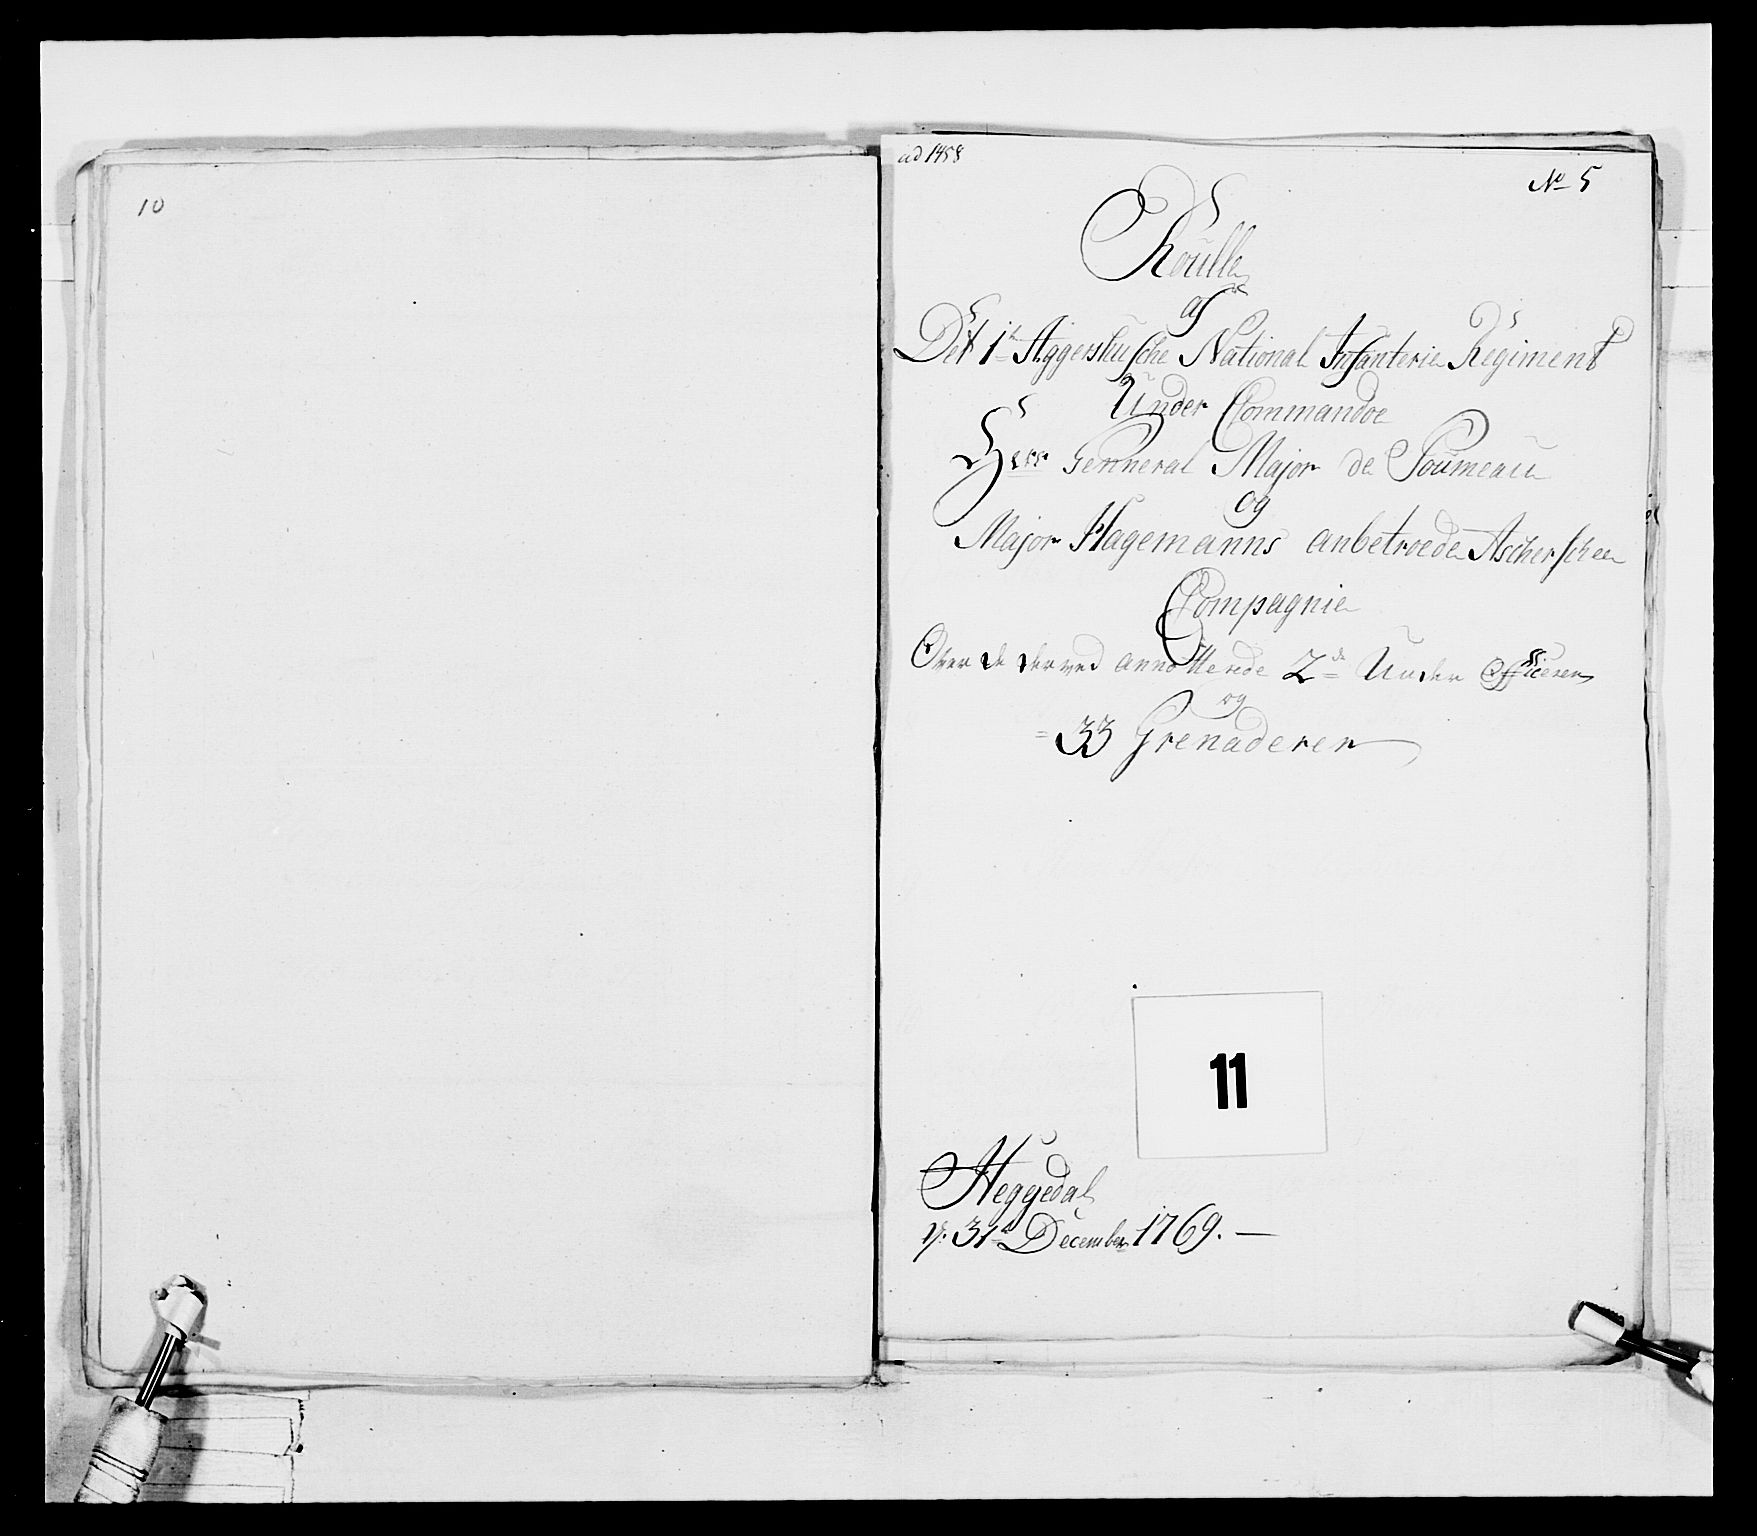 10
ad 1458
No 5
Roulle
af
Det 1te Aggershusche National Infanterie Regiment
Under Commandoe
Herr Genneral Major de Soumeau
og
Major Hagemanns anbetroede Ascherschee
Compagnie
Over de derved annotterede 2de Under Officerer
og
= 33 Grenaderer
11
Heggedal
d: 31te December 1769. —